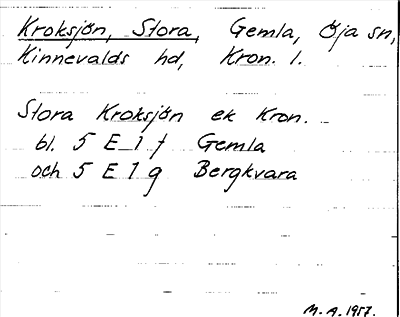 Kroksjön, Stora, Gemla, Öja sn,
Kinnevalds hd, Kron. l.
Stora Kroksjön ek Kron.
bl. 5 E 1 f Gemla
och 5 E 1 g Bergkvara
M. A. 1957.